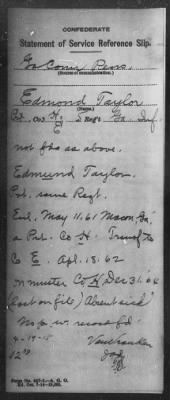 CONFEDERATE
Statement of Service Reference Slip.
Ga Comr Pens.
(Source of communication.)
Edmond Taylor
(Name.)
Co's H. & E 5 Reg't Ga Inf.
not fd as above.
Edmund Taylor
Pvt. same Regt.
Enl. May 11.61 Macon, Ga
a Pvt. Co H. Transf to
Co E. Apl. 18.62
on muster Co H Dec 31.'64
(last on file) Absent sick
No p. w. record fd.
4-19-15